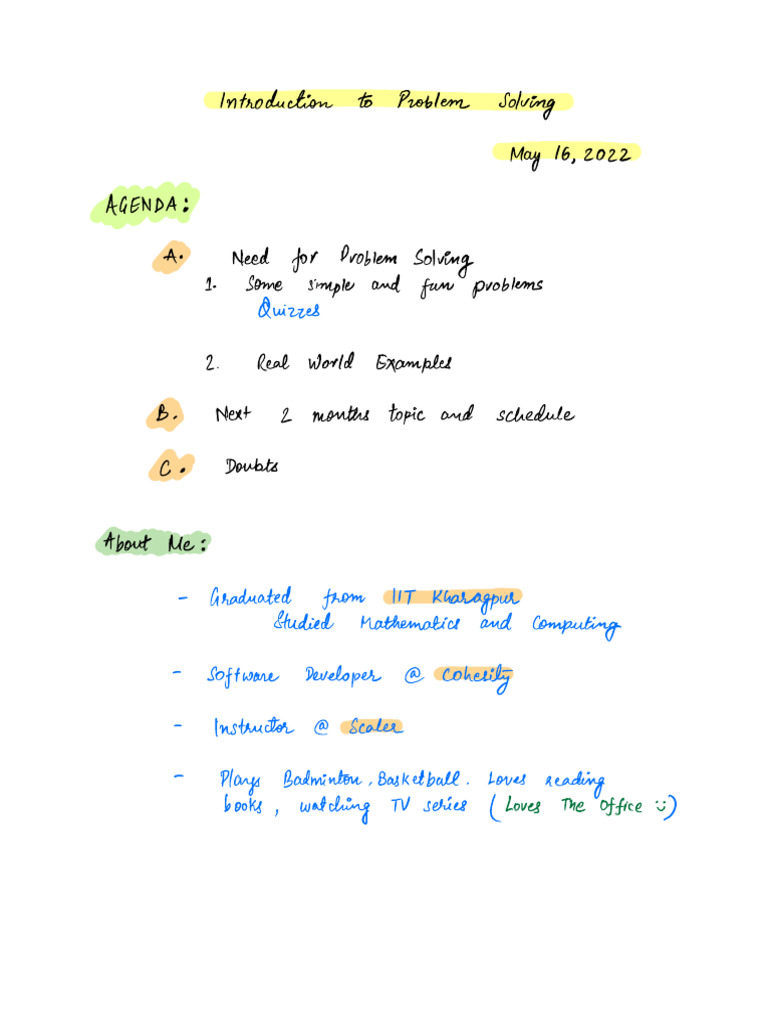 Introduction to Problem Solving
May 16, 2022
AGENDA:
A. Need for Problem Solving
1. Some simple and fun problems
Quizzes
2. Real World Examples
B. Next 2 months topic and schedule
C. Doubts
About Me:
- Graduated from IIT Kharagpur
Studied Mathematics and Computing
- Software Developer @ Cohesity
- Instructor @ Scaler
- Plays Badminton, Basketball. Loves reading
books, watching TV series (Loves The Office :))